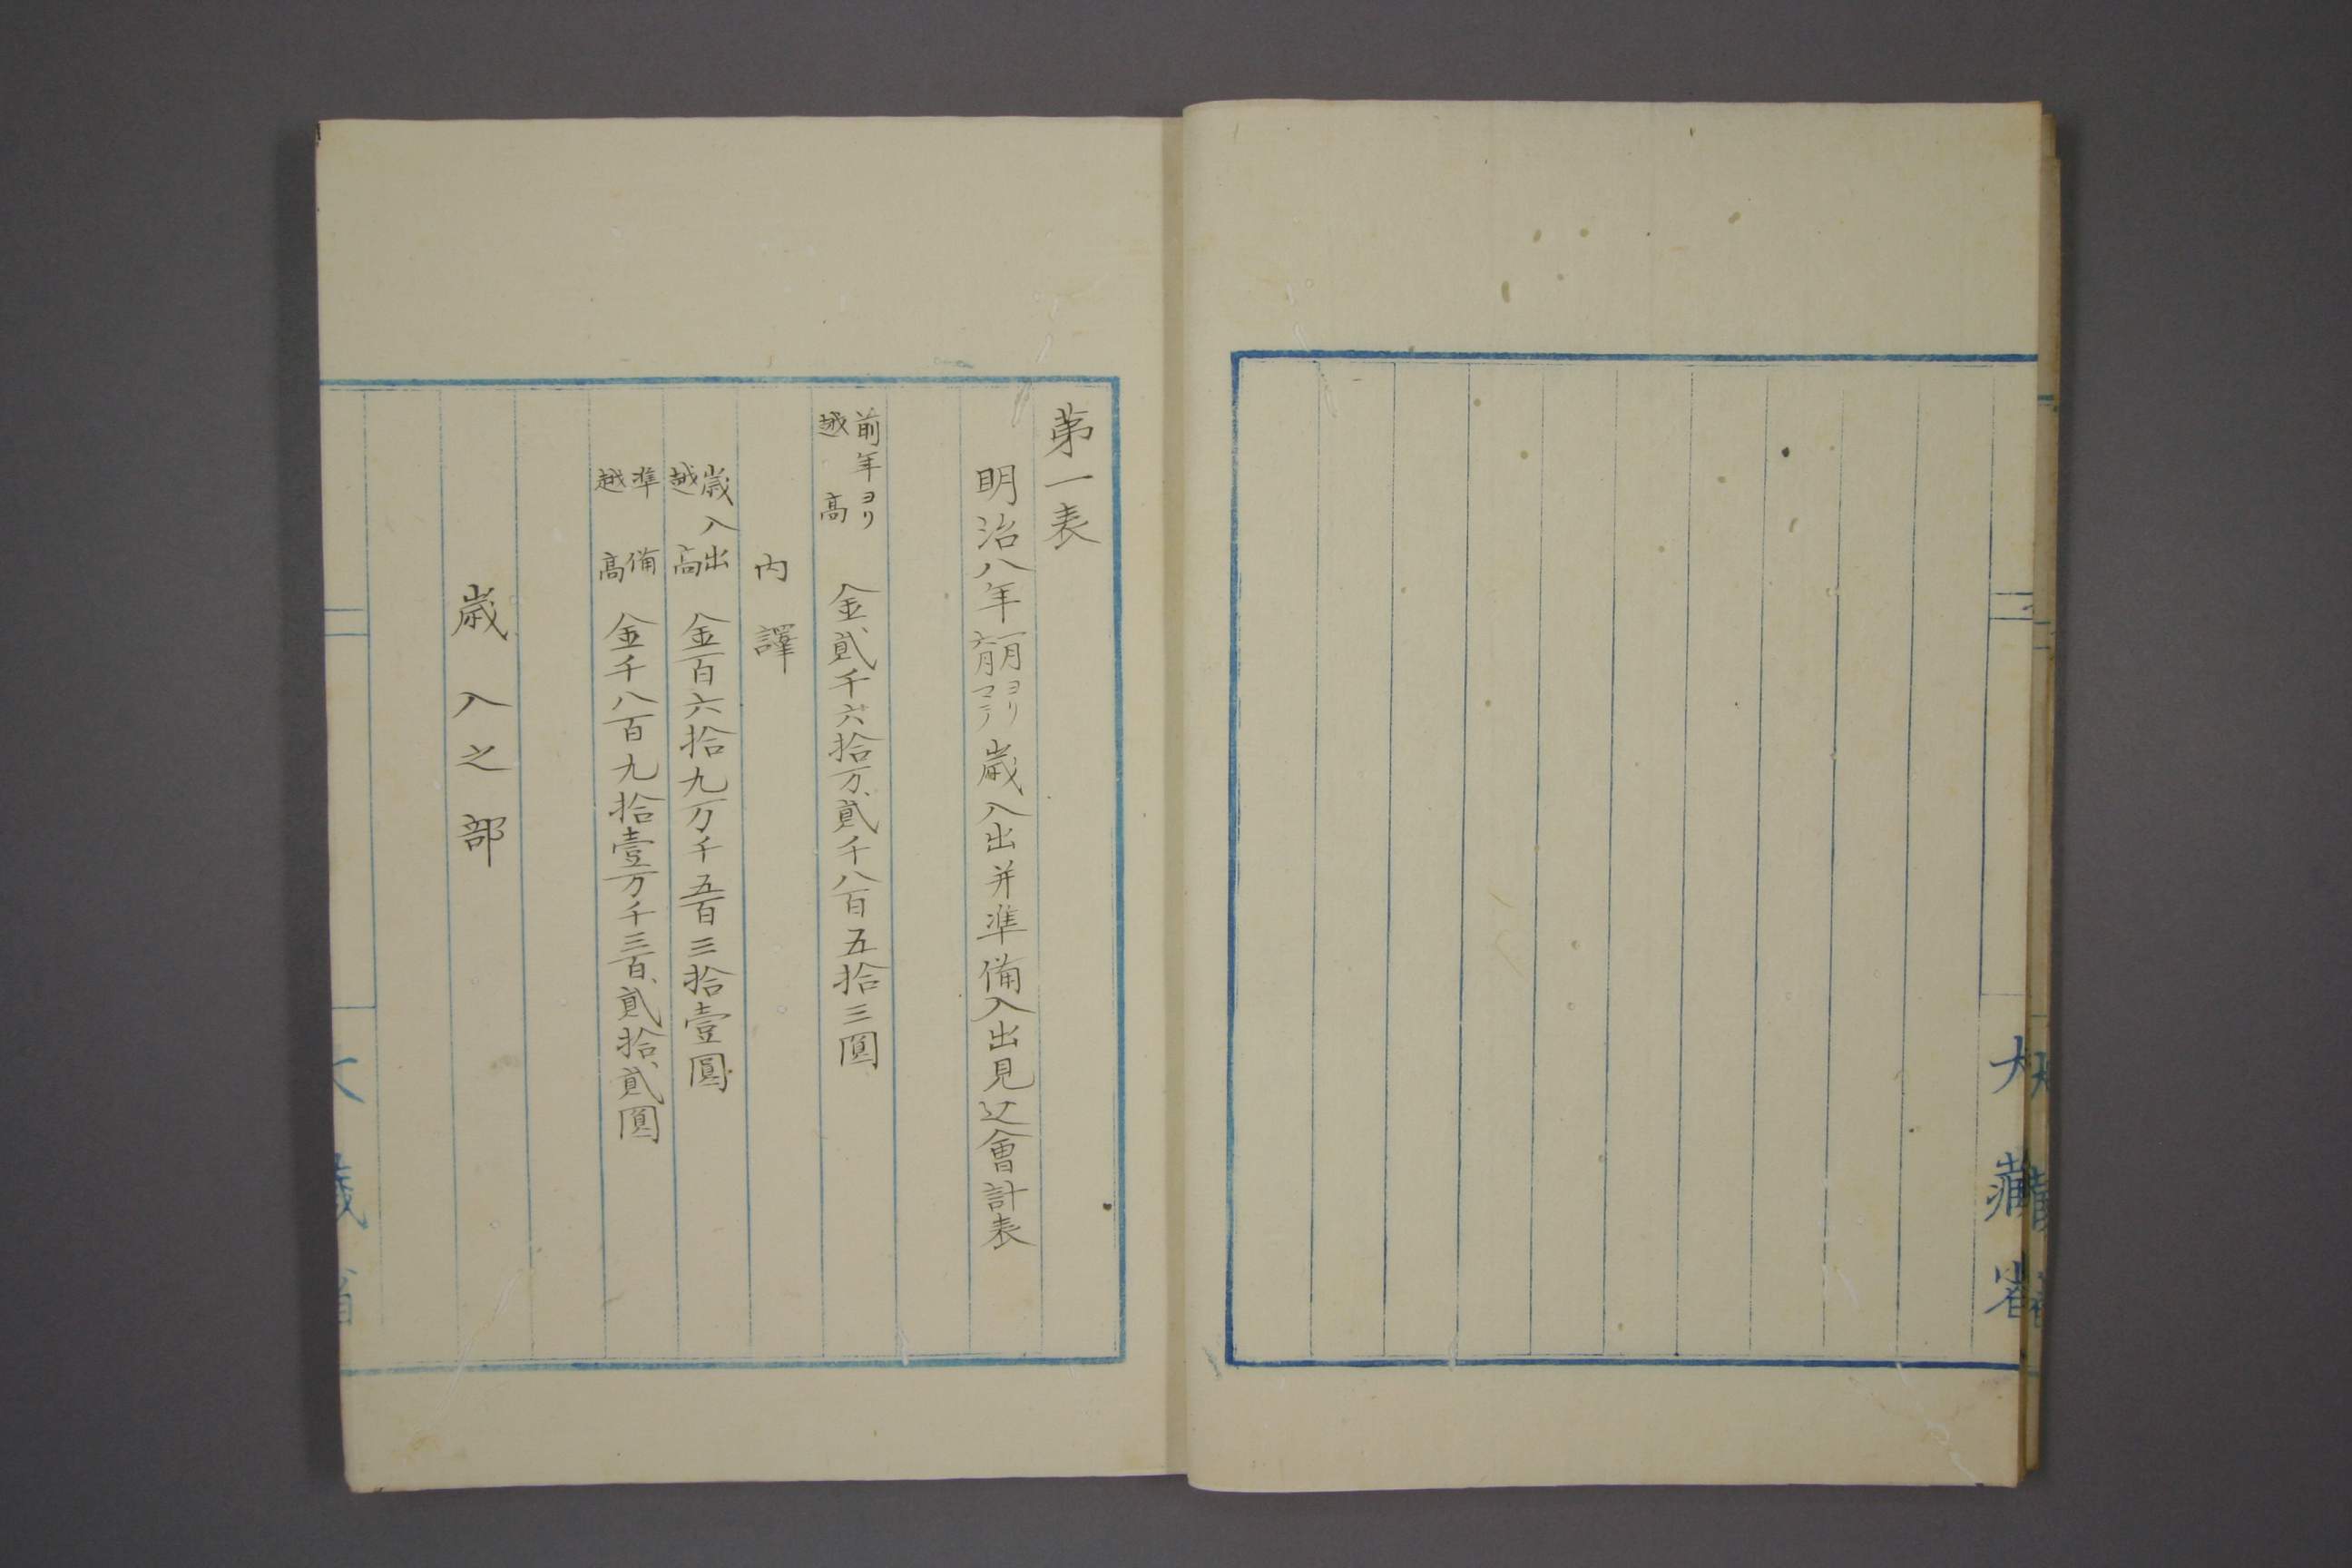 大藏省
苐一表
明治八年一月ヨリ六月マテ歳入出并準備入出見込會計表
前年ヨリ越高 金貳千六拾万貳千八百五拾三圓
内譯
歳入出越高 金百六拾九万千五百三拾壹圓
準備越高 金千八百九拾壹万千三百貳拾貳圓
歳入之部